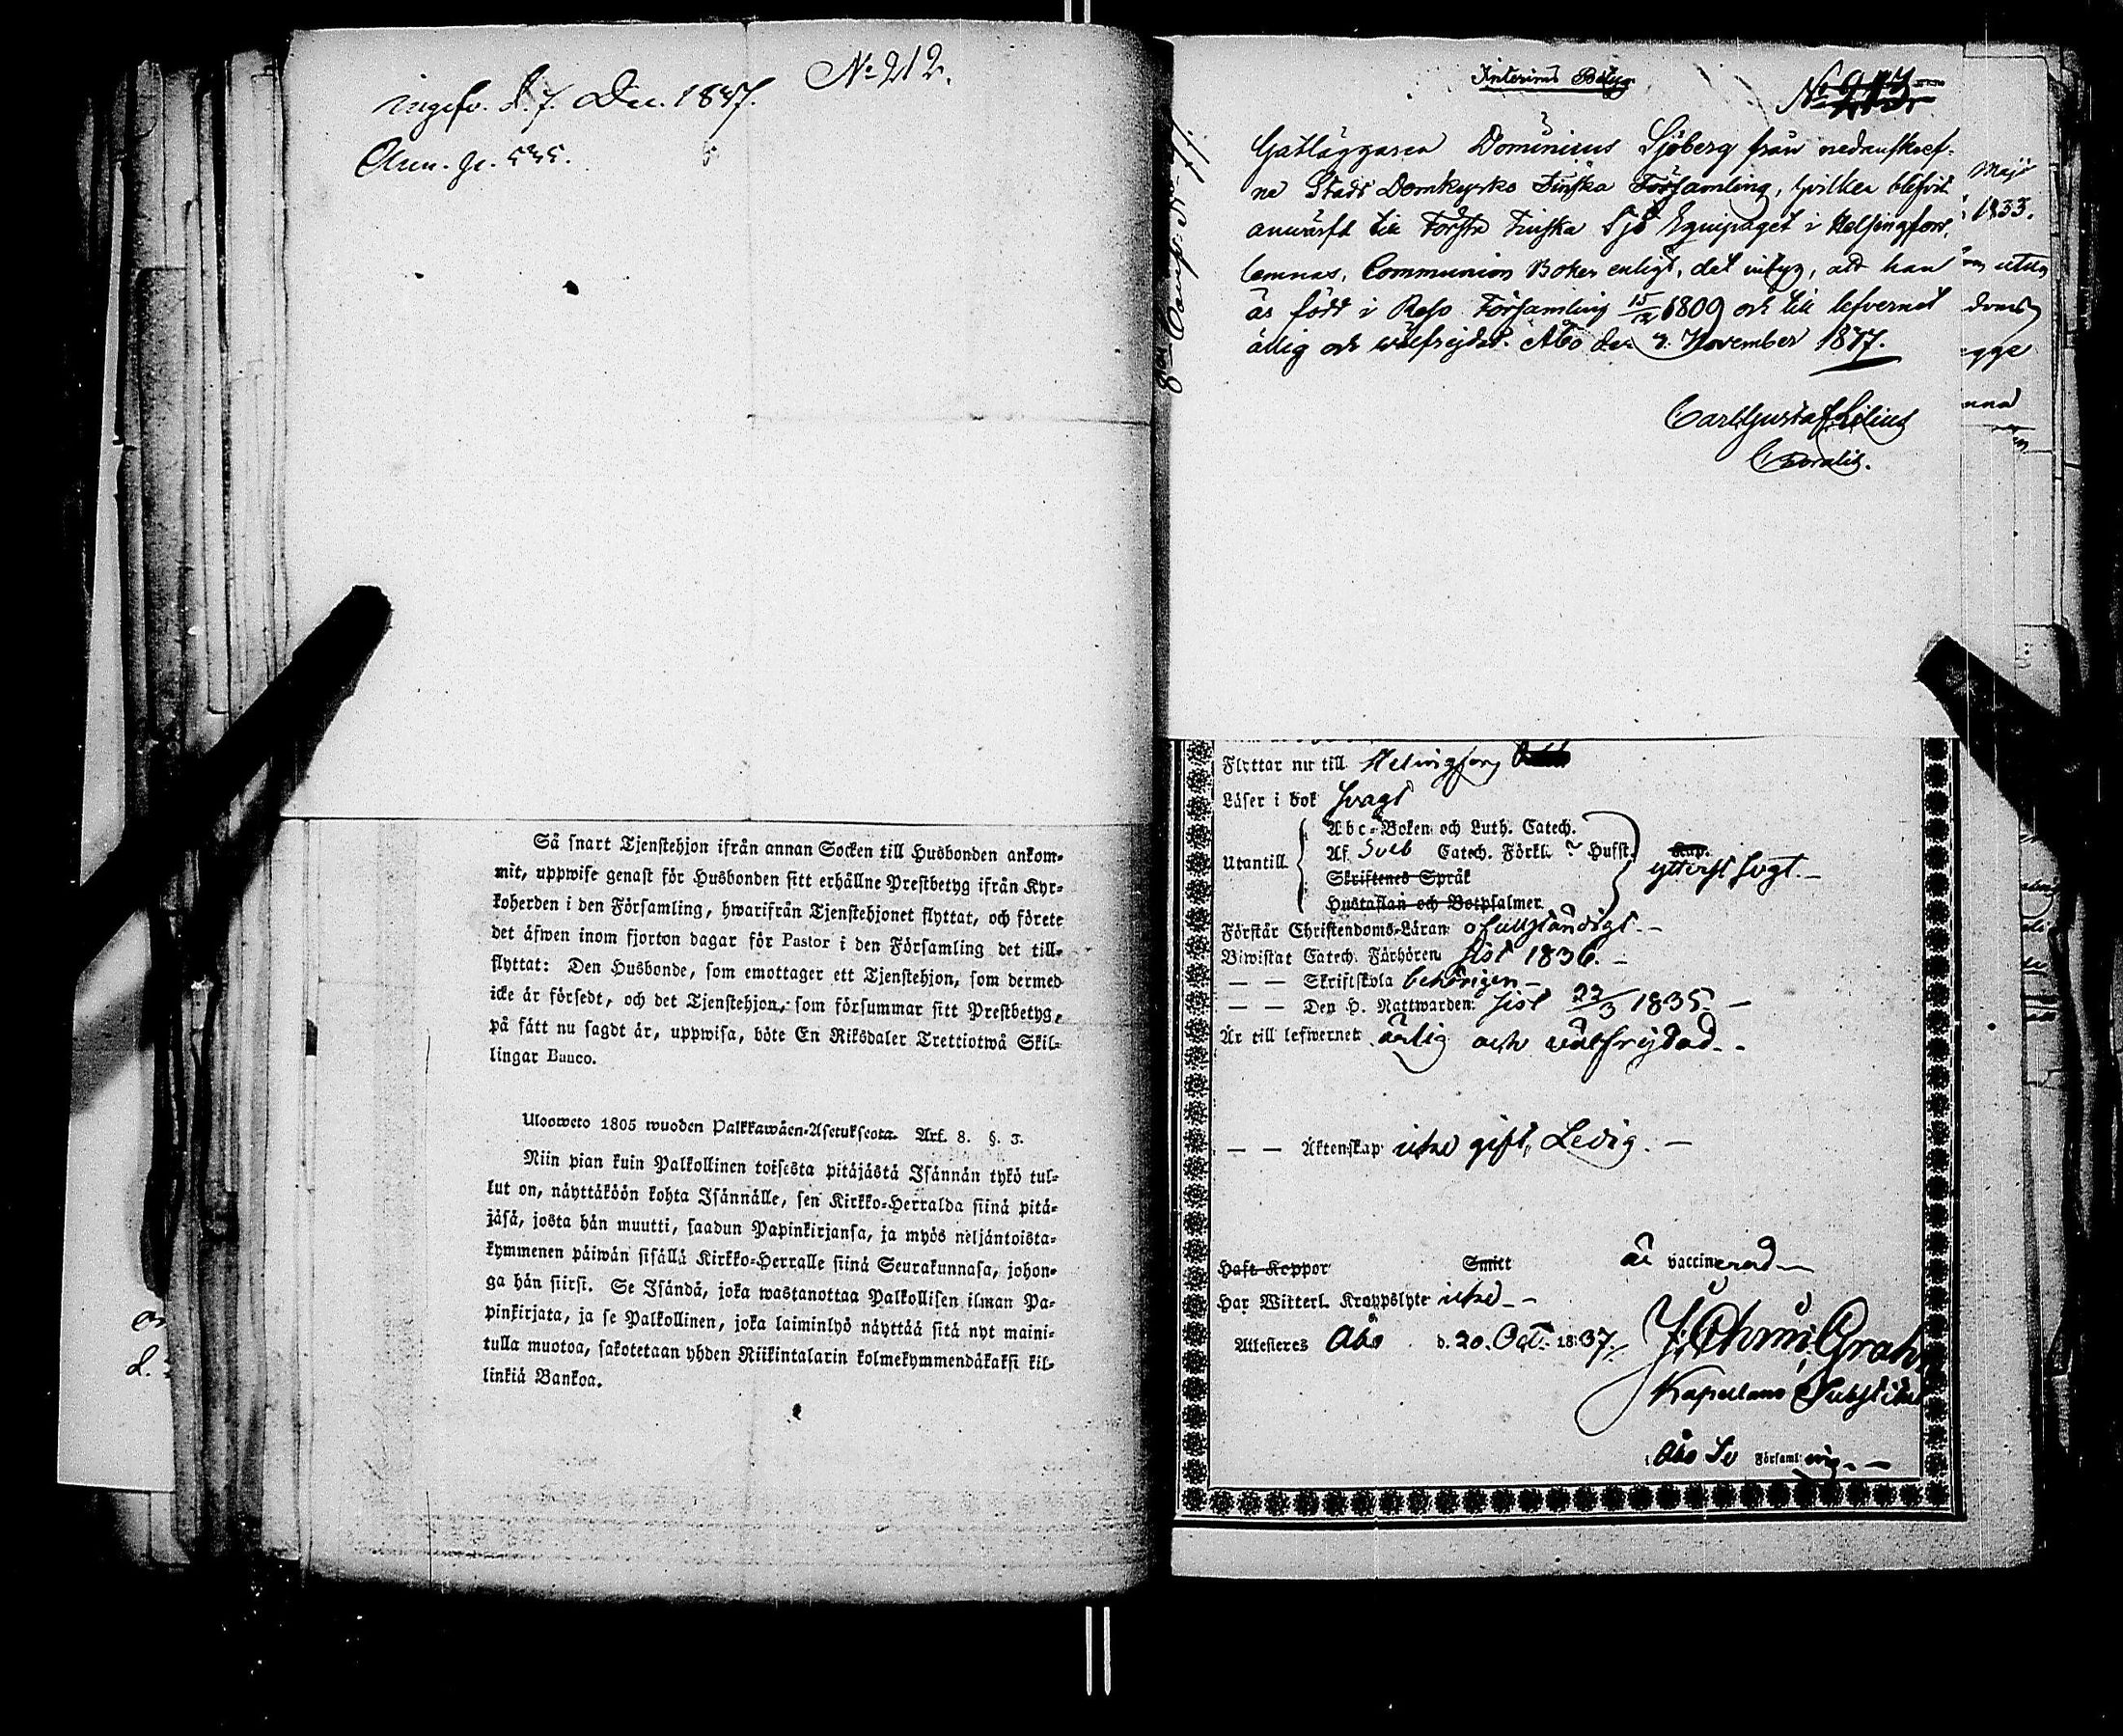 No 212.
ingefv. d. 7. Dec. 1837.
Så snart Tjenstehjon ifrån annan Socken till Husbonden ankom-
mit, uppwise genast för Husbonden sitt erhållne Prestbetyg ifrån Kyr-
koherden i den Församling, hwarifrån Tjenstehjonet flyttat, och förete
det äfwen inom fjorton dagar för Pastor i den Församling det till-
flyttat: Den Husbonde, som emottager ett Tjenstehjon, som dermed
icke är försedt, och det Tjenstehjon, som försummar sitt Prestbetyg,
på sätt nu sagdt är, uppwisa, böte En Riksdaler Trettiotwå Skil-
lingar Banco.
Uloosweto 1805 wuoden Palkkawäen-Asetuksesta. Art. 8. §. 3.
Niin pian kuin Palkollinen toisesta pitäjästä Isännän tykö tul-
lut on, näyttäköön kohta Isännälle, sen Kirkko-Herralda siinä pitä-
jäsä, josta hän muutti, saadun Papinkirjansa, ja myös neljäntoista-
kymmenen päiwän sisällä Kirkko-Herralle siinä Seurakunnasa, johon-
ga hän siirsi. Se Isändä, joka wastanottaa Palkollisen ilman Pa-
pinkirjata, ja se Palkollinen, joka laiminlyö näyttää sitä nyt maini-
tulla muotoa, sakotetaan yhden Riikintalarin kolmekymmendäkaksi kil-
linkiä Bankoa.
Interims Betyg
No 213
Gatläggaren Dominicus Sjöberg från nedanskref-
ne Stads Domkyrko Finska Församling, hvilken blifvit
anvärfd till Första Finska Sjö Equipaget i Helsingfors,
lemnas, Communion Boken enligt, det intyg, att han
är född i Reso Församling 15/12 1809 och till lefvernet
ärlig och wälfrejdad. Åbo den 7 November 1837.
Carl Gustaf Lilius
1833.
Flyttar nu till Helsingfors
Läser i bok svagt
Abc-Boken och Luth. Catech.
Utantill Af Sveb Catech. Förkl. Husst. ytterst svagt.
Skriftenes Språk
Hustaflan och Botpsalmer
Förstår Christendoms-Läran ofullständigt.
Biwistat Catech. Förhören sist 1836.
— — Skriftskola behörigen
— — Den H. Nattwarden sist 22/3 1835.
Är till lefwernet ärlig och välfrejdad.
— — Äktenskap icke gift, Ledig.
Haft Koppor Smitt är vaccinerad
Har Witterl. Kroppslyte icke
Attesteres Åbo d. 20. Oct. 1837. J. Ehrnr. Grahn
Kapellans Substitut
i Åbo Sv Församling